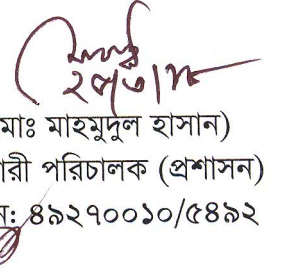 মাঃ মাহমুদুল হাসান)
ারী পরিচালক (প্রশাসন)
ন: ৪৯২৭০০১০/৫৪৯২